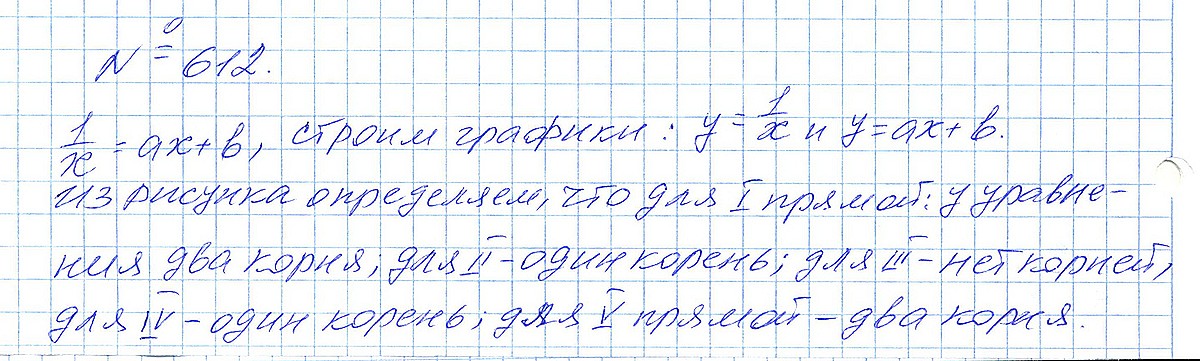 № 612.
1/x = ax + b, строим графики: y = 1/x и y = ax + b.
Из рисунка определяем, что для I прямой: у уравне-
ния два корня; для II - один корень; для III - нет корней,
для IV - один корень; для V прямой - два корня.